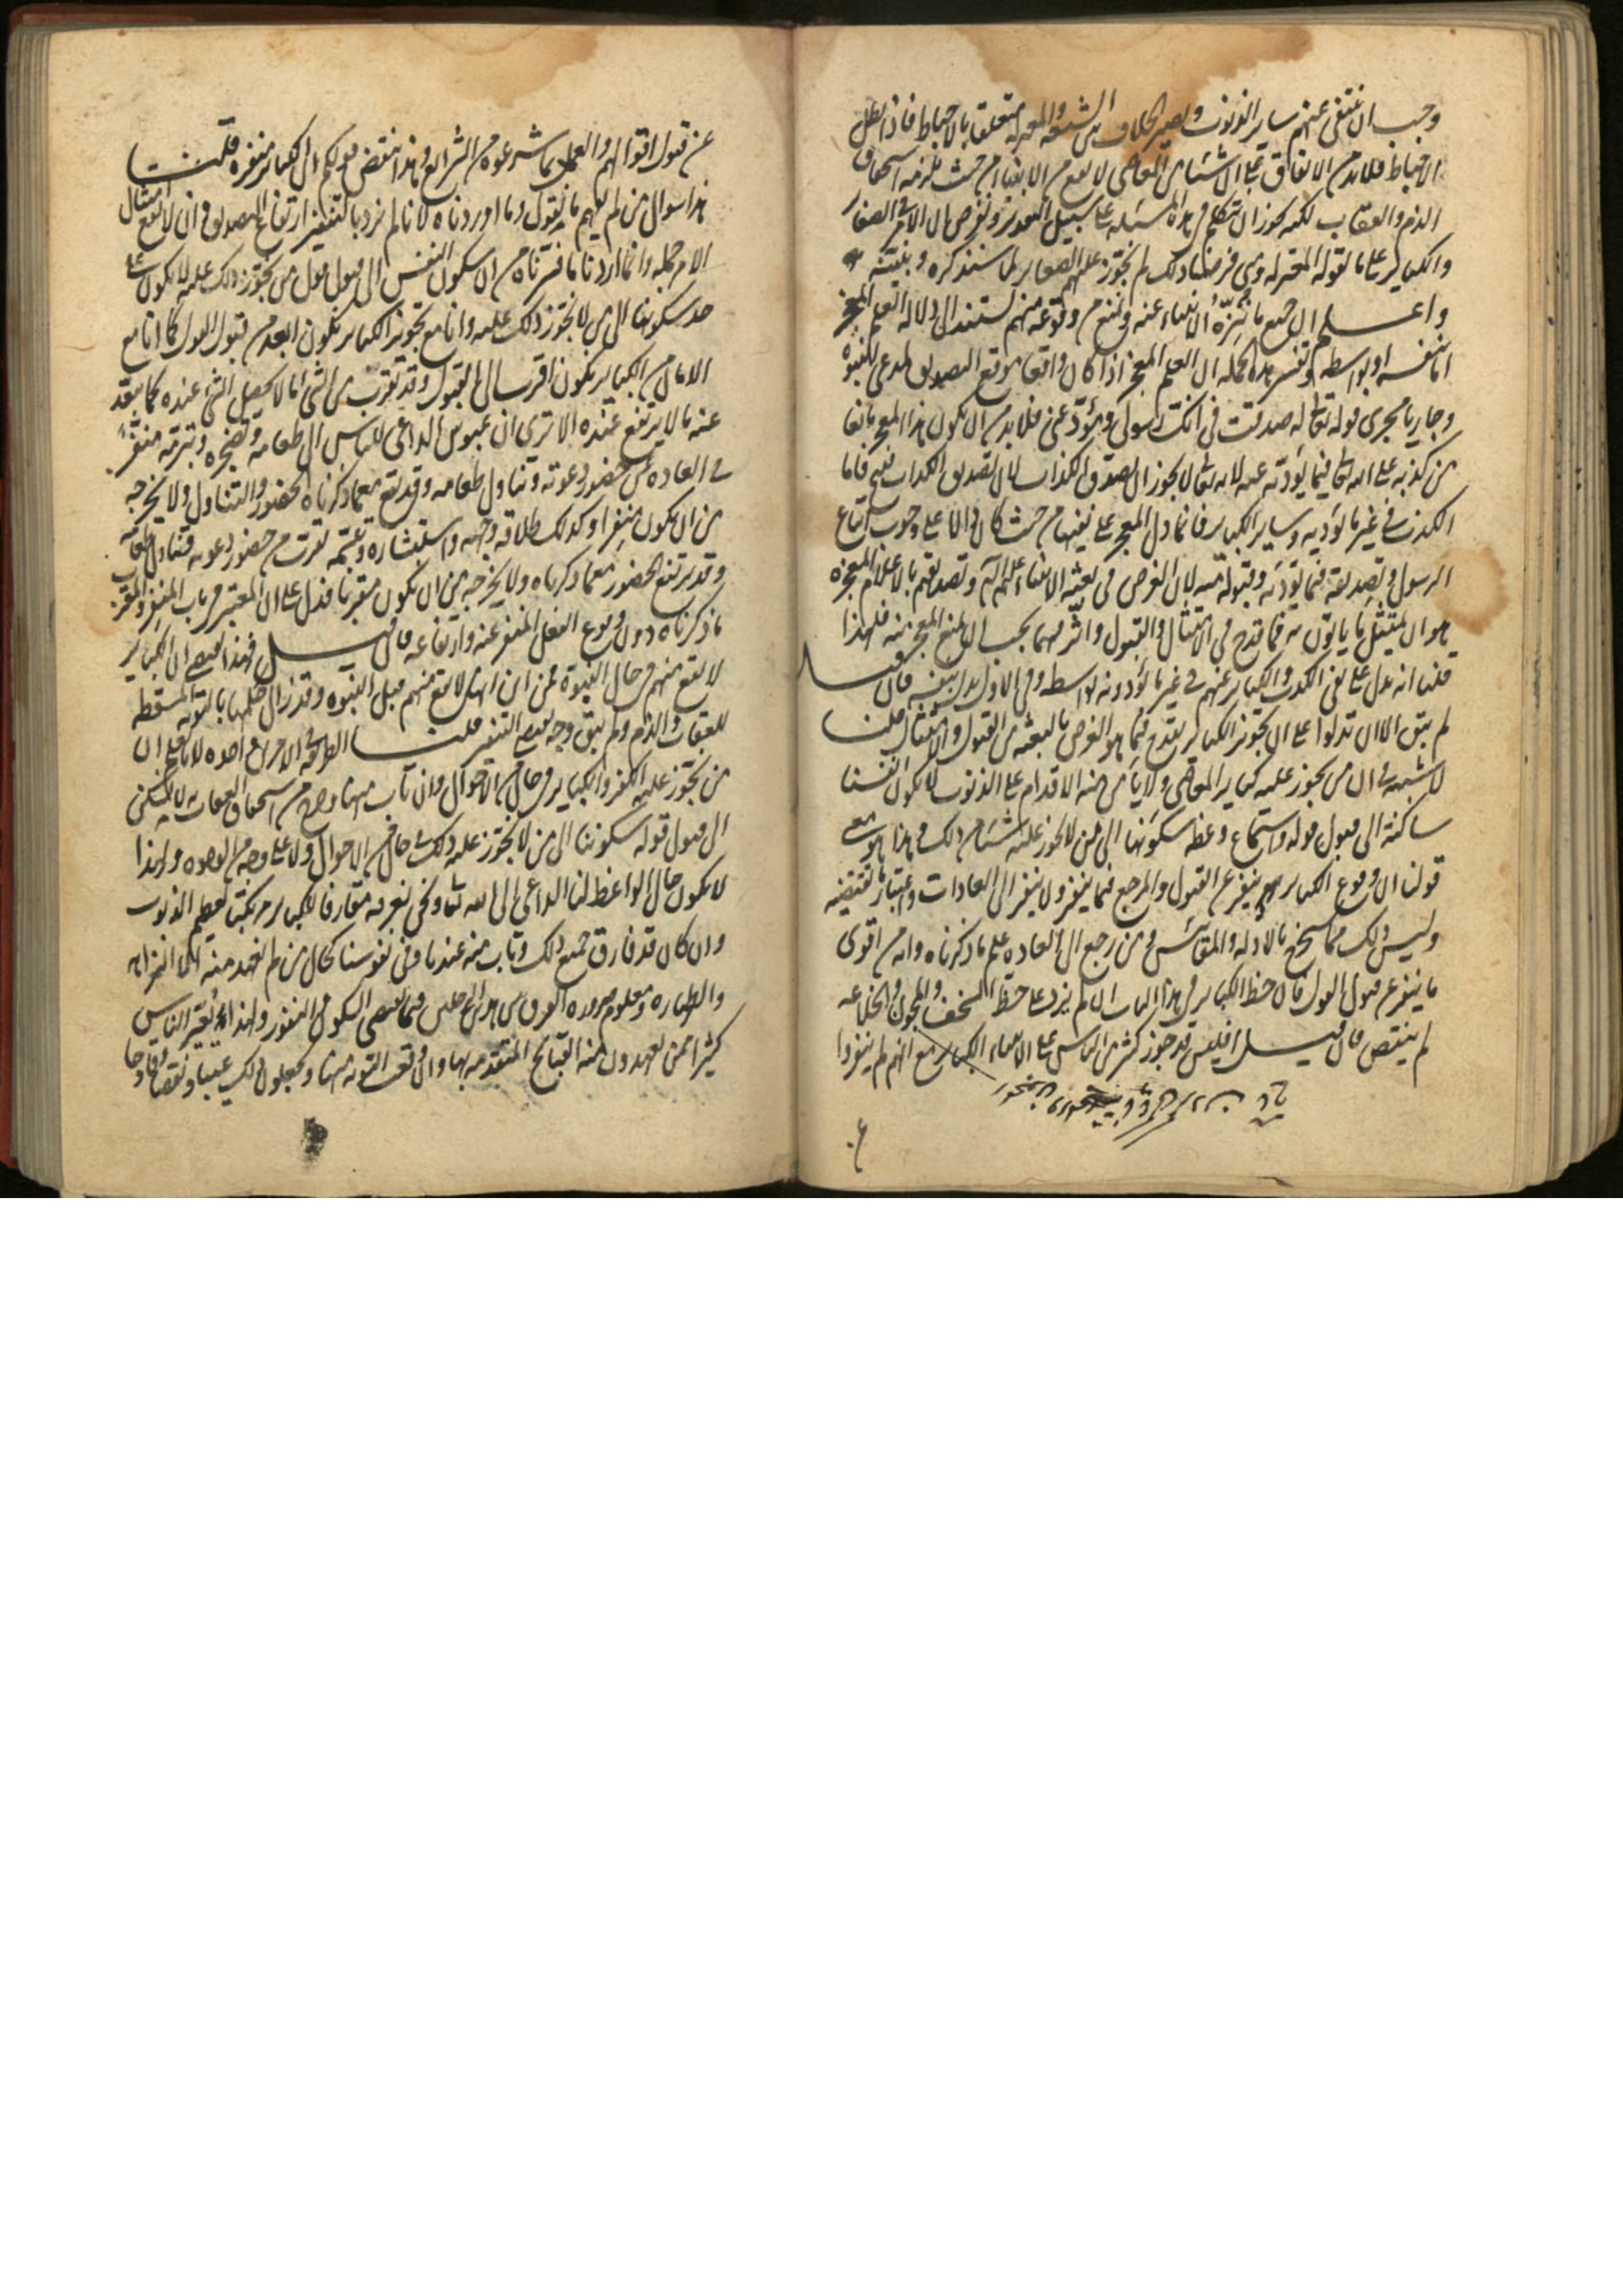 وجب ان ينتفى عنهم ساير الذنوب ويصير الخلاف بين الشيعة والمعتزلة متعلقا بالاحباط فاذا بطل
الاحباط فلابد من الاتفاق على ان شيئا من المعاصى لا يقع من الانبياء من حيث يلزمه استحقاق
الذم والعقاب لكنه يجوز ان نتكلم فى هذه المسئلة على سبيل التقدير ونفرض ان الامر فى الصغاير
والكباير على ما تقوله المعتزلة ومتى فرضنا ذلك لم نجوز عليهم الصغاير لما سنذكره ونبينه
واعلم ان جميع ما ننزه الانبياء عنه ونمنع من وقوعه منهم يستند الى دلالة العلم المعجز
اما بنفسه او بواسطة وتفسير هذه الجملة ان العلم المعجز اذا كان واقعا موقع التصديق لمدعى النبوة
وجاريا مجرى قوله تعالى له صدقت فى انك رسولى ومؤد عنى فلابد من ان يكون هذا المعجز مانعا
من كذبه على الله تعالى فيما يؤديه عنه لانه تعالى لا يجوز ان يصدق الكذاب لان تصديق الكذاب قبيح فاما
الكذب فى غير ما يؤديه وساير الكباير فانما دل المعجز على نفيها من حيث كان دالا على وجوب اتباع
الرسول وتصديقه فيما يؤديه وقبوله منه لان الغرض فى بعثة الانبياء عليهم السلام وتصديقهم بالاعلام المعجزة
هو ان يمتثل ما ياتون به فما قدح فى الامتثال والقبول واثر فيهما يجب ان يمنع المعجز منه فلهذا
قلنا انه يدل على نفى الكذب والكباير عنهم فى غير ما يؤدونه بواسطة وفى الاول يدل بنفسه فان قيل
لم يبق الا ان تدلوا على ان تجويز الكباير يقدح فيما هو الغرض بالبعثة من القبول والامتثال قلنا
لا شبهة فى ان من يجوز عليه كباير المعاصى ولا يامن منه الاقدام على الذنوب لا تكون انفسنا
ساكنة الى قبول قوله واستماع وعظه سكونها الى من لا يجوز عليه شيئا من ذلك وهذا هو معنى
قولنا ان وقوع الكباير ينفر عن القبول والمرجع فيما ينفر ولا ينفر الى العادات واعتبار ما تقتضيه
وليس ذلك مما يستخرج بالادلة والمقاييس ومن رجع الى العادة علم ما ذكرناه وانه من اقوى
ما ينفر عن قبول القول فان حظ الكباير فى هذا الباب ان لم يزد على حظ السخف والمجون والخلاعة
لم ينقص فان قيل افليس قد جوز كثير من الناس على الانبياء الكباير مع انهم لم ينفروا
عن قبول اقوالهم والعمل بما شرعوه من الشرائع وهذا ينقض قولكم ان الكباير منفرة قلنا
هذا سوال من لم يفهم ما نقول وما اوردناه لانا لم نرد بالتنفير ارتفاع التصديق وان لا يقع امتثال
الامر جملة وانما اردنا ما فسرناه من ان سكون النفس الى قبول قول من يجوز ذلك عليه لا يكون على
حد سكونها الى من لا يجوز ذلك عليه وانا مع تجويز الكباير نكون ابعد من قبول القول كما انا مع
الامان من الكباير نكون اقرب الى القبول وقد يقرب من الشئ ما لا يحصل الشئ عنده كما يبعد
عنه ما لا يرتفع عنده الا ترى ان عبوس الداعى للناس الى طعامه وتضجره وتبرمه منفر
فى العادة عن حضور دعوته وتناول طعامه وقد يقع مع ما ذكرناه الحضور والتناول ولا يخرجه
من ان يكون منفرا وكذلك طلاقة وجهه واستبشاره وتبسمه يقرب من حضور دعوته وتناول طعامه
وقد يرتفع الحضور مع ما ذكرناه ولا يخرجه من ان يكون مقربا فدل على ان المعتبر فى باب المنفر والمقرب
ما ذكرناه دون وقوع الفعل المنفر عنه وارتفاعه فان قيل فهذا يقتضى ان الكباير
لا تقع منهم فى حال النبوة فمن اين انها لا تقع منهم قبل النبوة وقد زال حكمها بالتوبة المسقطة
للعقاب والذم ولم يبق وجه يقتضى التنفير قلنا الطريقة فى الامرين واحدة لانا نعلم ان
من نجوز عليه الكفر والكباير فى حال من الاحوال وان تاب منهما وخرج من استحقاق العقاب به لا نسكن
الى قبول قوله سكوننا الى من لا نجوز عليه ذلك فى حال من الاحوال ولا على وجه من الوجوه ولهذا
لا يكون حال الواعظ لنا الداعى الى الله تعالى ونحن نعرفه مقارفا للكباير مرتكبا لعظيم الذنوب
وان كان قد فارق جميع ذلك وتاب منه عندنا وفى نفوسنا كحال من لم نعهد منه الا النزاهة
والطهارة ومعلوم ضرورة الفرق بين هذين الرجلين فيما يقتضى السكون والنفور ولهذا كثيرا ما يعير الناس
كثيرا من يعهدون منه القبايح المتقدمة بها وان وقعت التوبة منها ويجعلون ذلك عيبا ونقصا وقادحا